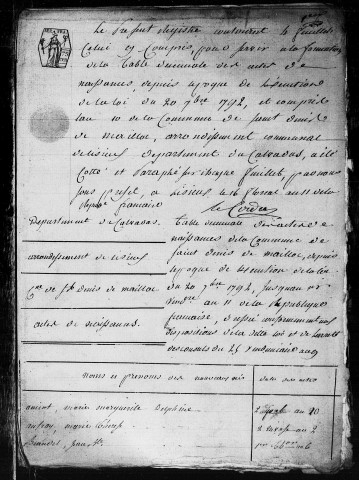 Le Présent Registre contenant feuillets
Celui cy Compris, pour servir à la formation
de la Table decennale des actes de
naissances, depuis l'époque de l'execution
de la loi du 20 7bre 1792, et compris
l'an 10 de la Commune de Saint denis
de maillac, arrondissement communal
de Lisieux Departement du Calvados, a été
Cotté et Paraphé par chaque feuillet, par nous
Sous Prefet, à Lisieux le 16 floreal an 11 de la
République française
Departement du Calvados
arrondissement de Lisieux
Cne de St denis de maillac
actes de naissances.
Table decennale des actes de
naissances de la Commune de
Saint denis de maillac, depuis
l'époque de l'execution de la loi
du 20 7bre 1792, jusqu'au 1er
an 11 de la République
française, dressé conformément aux
dispositions de la dite loi et de l'arrêté
des consuls du 25 vendemiaire an 9
noms et prénoms des
date des actes
amiot, marie marguerite Delphine
an 10
aufray, marie
an 2